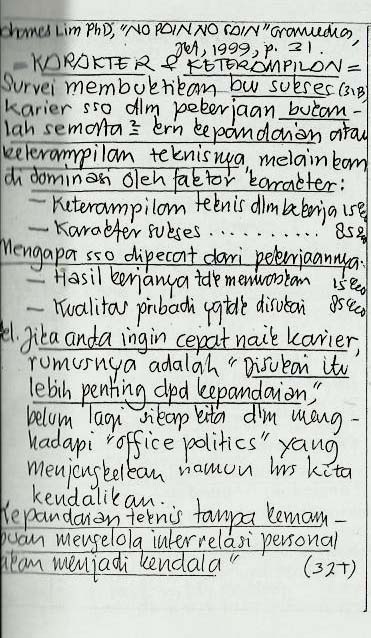 ohanes Lim PhD, "NO PAIN NO GAIN" Gramedia,
Jkt, 1999, p. 31.
= KARAKTER & KETERAMPILAN =
Survei membuktikan bw sukses (31B)
karier sso dlm pekerjaan bukan-
lah semata2 krn kepandaian atau
keterampilan teknisnya, melainkan
di dominasi oleh faktor karakter:
— Keterampilan teknis dlm bekerja 15%
— Karakter sukses .......... 85%
Mengapa sso dipecat dari pekerjaannya.
— Hasil kerjanya tdk memuaskan 15%
— Kualitas pribadi yg tdk disukai 85%
el. Jika anda ingin cepat naik karier,
rumusnya adalah "Disukai itu
lebih penting dpd kepandaian,"
belum lagi sikap kita dlm meng-
hadapi "office politics" yang
menjengkelkan namun hrs kita
kendalikan.
Kepandaian teknis tanpa kemam-
puan mengelola interrelasi personal
akan menjadi kendala" (32T)